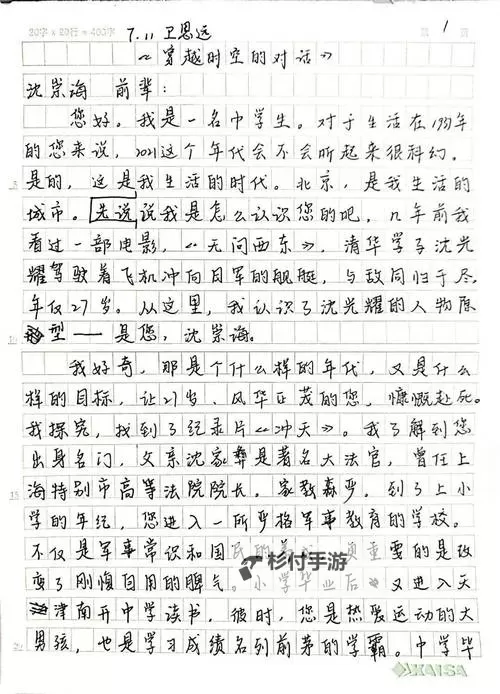 20字 x 20行 = 400字 7.11 卫思远 1 页
《穿越时空的对话》
沈崇海 前辈:
您好。我是一名中学生。对于生活在1937年
的您来说,2021这个年代会不会听起来很科幻。
是的,这是我生活的时代。北京,是我生活的
城市。先说说我是怎么认识您的吧,几年前我
看过一部电影,《无问西东》,清华学子沈光
耀驾驶着飞机冲向日军的舰艇,与敌同归于尽,
年仅27岁。从这里,我认识了沈光耀的人物原
型——是您,沈崇海。
我好奇,那是个什么样的年代,又是什么
样的目标,让27岁、风华正茂的您,慷慨赴死。
我探究,找到了纪录片《冲天》。我了解到您
出身名门,父亲沈家彝是著名大法官,曾任上
海特别市高等法院院长。家教森严。到了上小
学的年纪,您进入一所严格军事教育的学校。
不仅是军事常识和国民的 重要的是改
变了刚愎自用的脾气。小学毕业后 又进入天
津南开中学读书,彼时,您是热爱运动的大
男孩,也是学习成绩名列前茅的学霸。中学毕
杉付手游
5
10
15
20
KAISA